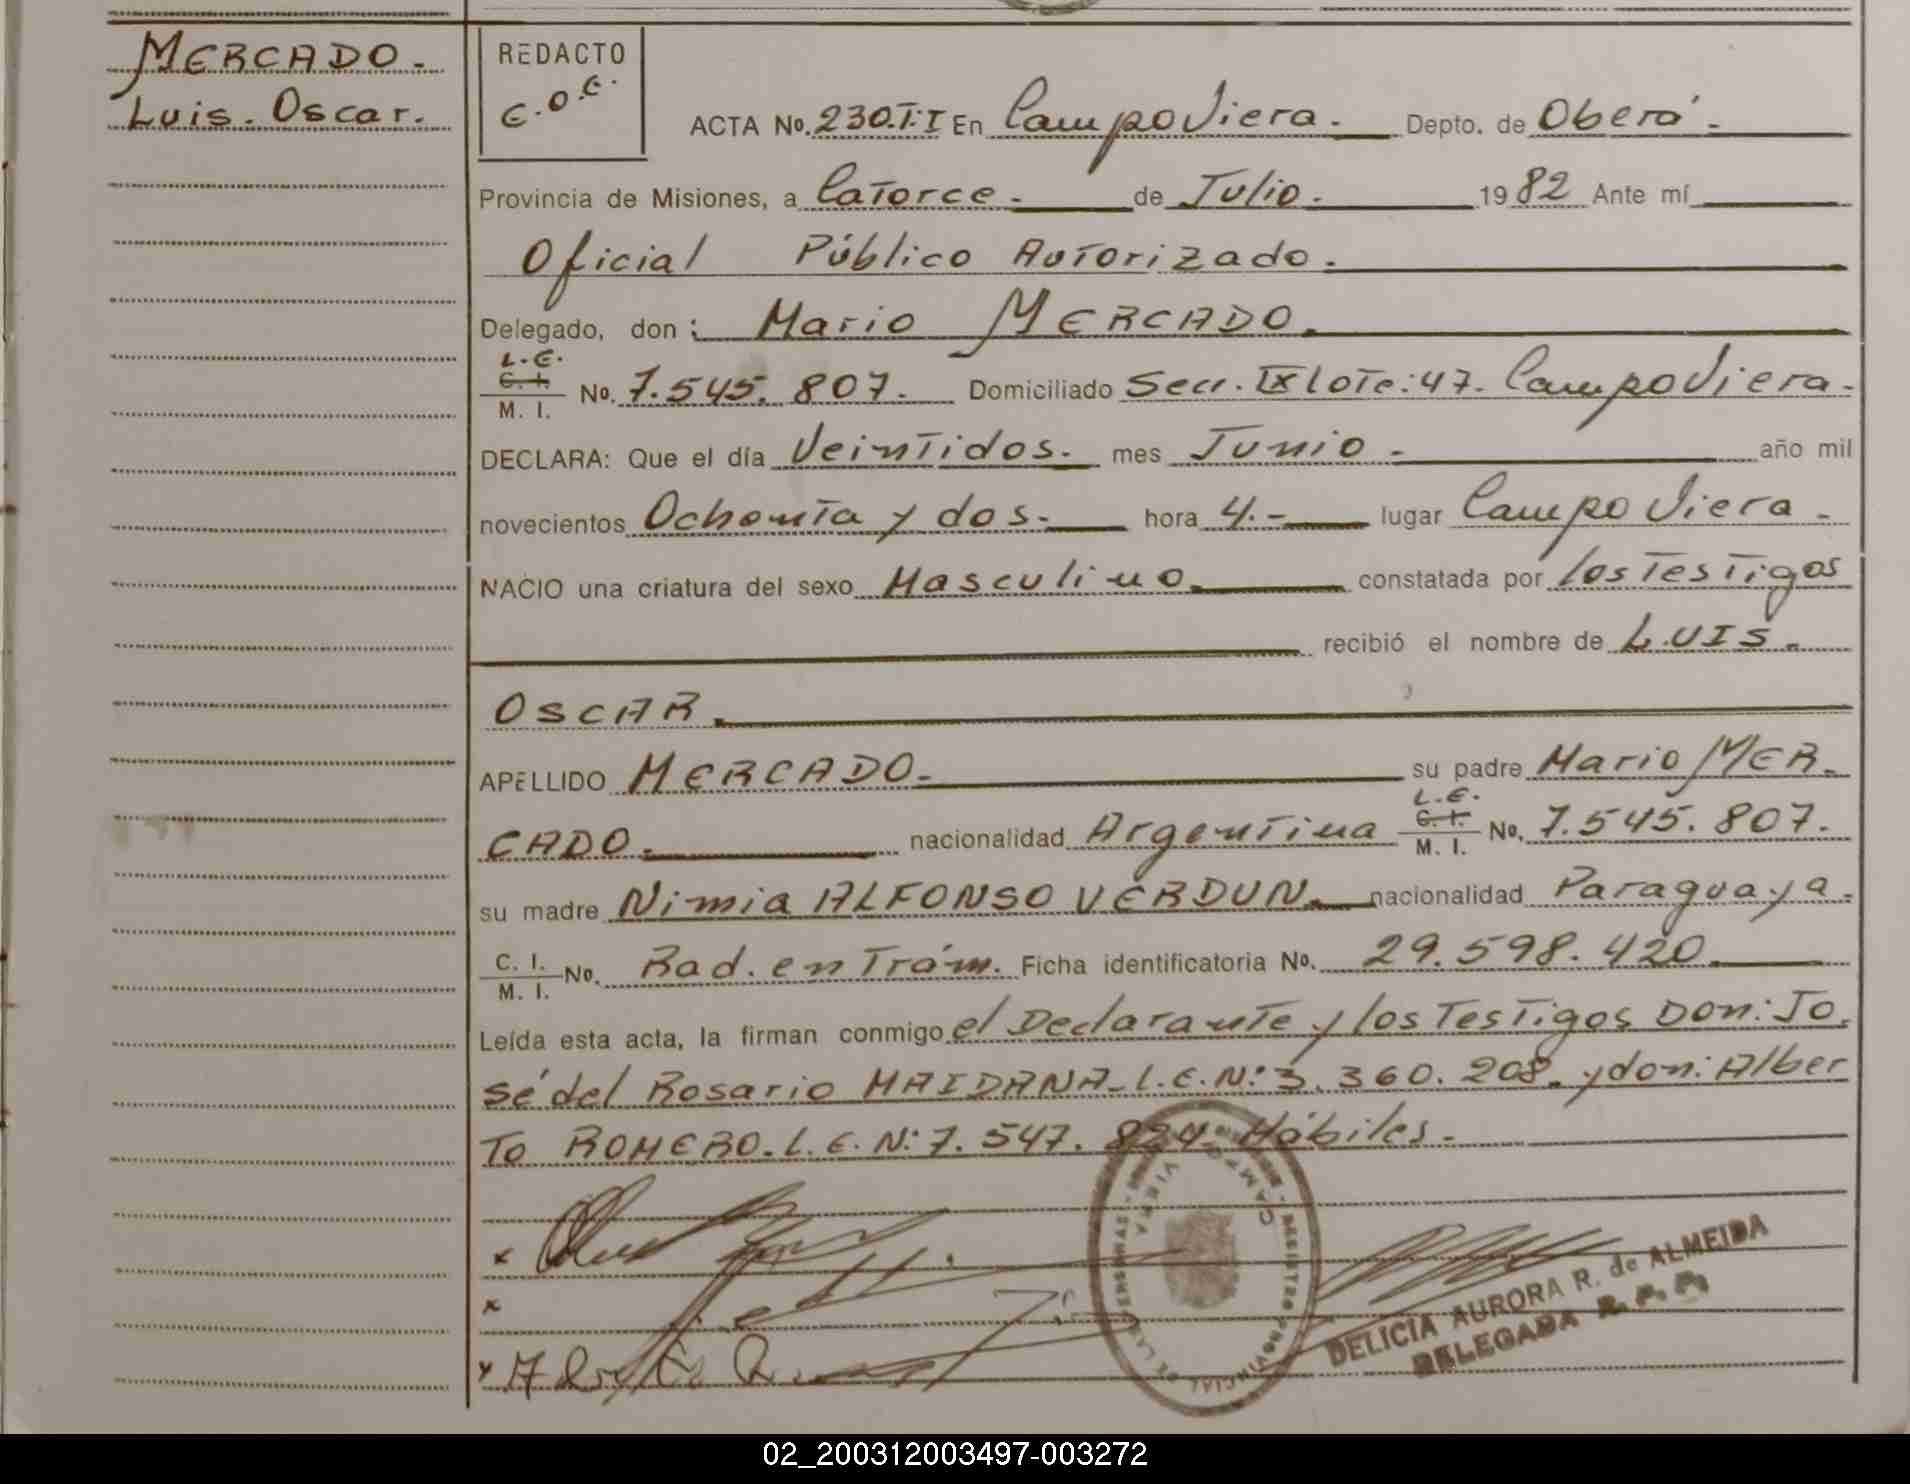 MERCADO.
Luis. Oscar.
REDACTO
E.O.E.
ACTA No. 230.T:I En Campo Viera. Depto. de Oberá.
Provincia de Misiones, a Catorce. de Julio. 1982 Ante mí
Oficial Público Autorizado.
Delegado, don: Mario MERCADO.
L.E.
C. I.
M. I. No. 7.545.807. Domiciliado Secc. IX lote: 47. Campo Viera.
DECLARA: Que el día Veintidos. mes Junio. año mil
novecientos Ochenta y dos. hora 4.- lugar Campo Viera.
NACIO una criatura del sexo Masculino constatada por los Testigos
recibió el nombre de LUIS.
OSCAR.
APELLIDO MERCADO. su padre Mario MER-
CADO. nacionalidad Argentina L.E. C. I. M. I. No. 7.545.807.
su madre Nimia ALFONSO VERDUN. nacionalidad Paraguaya.
C. I. M. I. No. Rad. en Trám. Ficha identificatoria No. 29.598.420
Leída esta acta, la firman conmigo el Declarante y los Testigos Don: Jo-
sé del Rosario MAIDANA. L.E.N: 3.360.208. y don: Alber
To ROMERO. L.E.N: 7.547.824. Hábiles.
REGISTRO PROVINCIAL DE LAS PERSONAS
CAMPO VIERA
DELICIA AURORA R. de ALMEIDA
DELEGADA R. P. P.
02_200312003497-003272